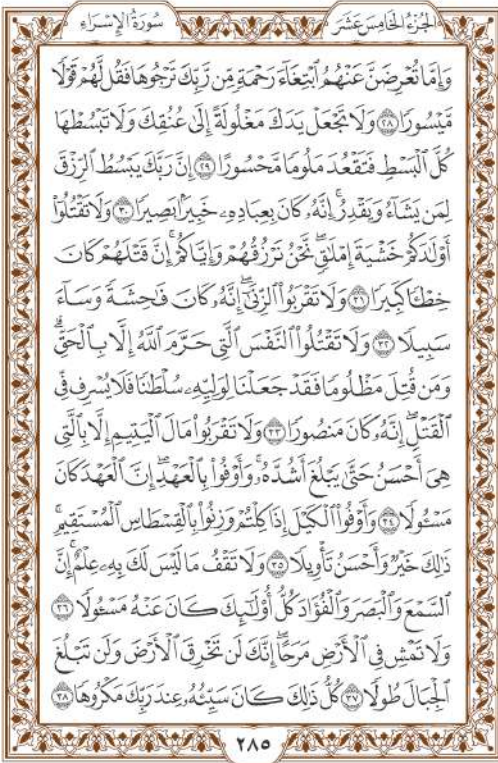 الجزء الخامس عشر سورة الإسراء
وَإِمَّا تُعْرِضَنَّ عَنْهُمُ ٱبْتِغَآءَ رَحْمَةٍ مِّن رَّبِّكَ تَرْجُوهَا فَقُل لَّهُمْ قَوْلًا
مَّيْسُورًا ٢٨ وَلَا تَجْعَلْ يَدَكَ مَغْلُولَةً إِلَىٰ عُنُقِكَ وَلَا تَبْسُطْهَا
كُلَّ ٱلْبَسْطِ فَتَقْعُدَ مَلُومًا مَّحْسُورًا ٢٩ إِنَّ رَبَّكَ يَبْسُطُ ٱلرِّزْقَ
لِمَن يَشَآءُ وَيَقْدِرُ ۚ إِنَّهُۥ كَانَ بِعِبَادِهِۦ خَبِيرًۢا بَصِيرًا ٣٠ وَلَا تَقْتُلُوٓا۟
أَوْلَٰدَكُمْ خَشْيَةَ إِمْلَٰقٍ ۖ نَّحْنُ نَرْزُقُهُمْ وَإِيَّاكُمْ ۚ إِنَّ قَتْلَهُمْ كَانَ
خِطْـًٔا كَبِيرًا ٣١ وَلَا تَقْرَبُوا۟ ٱلزِّنَىٰٓ ۖ إِنَّهُۥ كَانَ فَٰحِشَةً وَسَآءَ
سَبِيلًا ٣٢ وَلَا تَقْتُلُوا۟ ٱلنَّفْسَ ٱلَّتِى حَرَّمَ ٱللَّهُ إِلَّا بِٱلْحَقِّ ۗ
وَمَن قُتِلَ مَظْلُومًا فَقَدْ جَعَلْنَا لِوَلِيِّهِۦ سُلْطَٰنًا فَلَا يُسْرِف فِّى
ٱلْقَتْلِ ۖ إِنَّهُۥ كَانَ مَنصُورًا ٣٣ وَلَا تَقْرَبُوا۟ مَالَ ٱلْيَتِيمِ إِلَّا بِٱلَّتِى
هِىَ أَحْسَنُ حَتَّىٰ يَبْلُغَ أَشُدَّهُۥ ۚ وَأَوْفُوا۟ بِٱلْعَهْدِ ۖ إِنَّ ٱلْعَهْدَ كَانَ
مَسْـُٔولًا ٣٤ وَأَوْفُوا۟ ٱلْكَيْلَ إِذَا كِلْتُمْ وَزِنُوا۟ بِٱلْقِسْطَاسِ ٱلْمُسْتَقِيمِ ۚ
ذَٰلِكَ خَيْرٌ وَأَحْسَنُ تَأْوِيلًا ٣٥ وَلَا تَقْفُ مَا لَيْسَ لَكَ بِهِۦ عِلْمٌ ۚ إِنَّ
ٱلسَّمْعَ وَٱلْبَصَرَ وَٱلْفُؤَادَ كُلُّ أُو۟لَٰٓئِكَ كَانَ عَنْهُ مَسْـُٔولًا ٣٦
وَلَا تَمْشِ فِى ٱلْأَرْضِ مَرَحًا ۖ إِنَّكَ لَن تَخْرِقَ ٱلْأَرْضَ وَلَن تَبْلُغَ
ٱلْجِبَالَ طُولًا ٣٧ كُلُّ ذَٰلِكَ كَانَ سَيِّئُهُۥ عِندَ رَبِّكَ مَكْرُوهًا ٣٨
٢٨٥